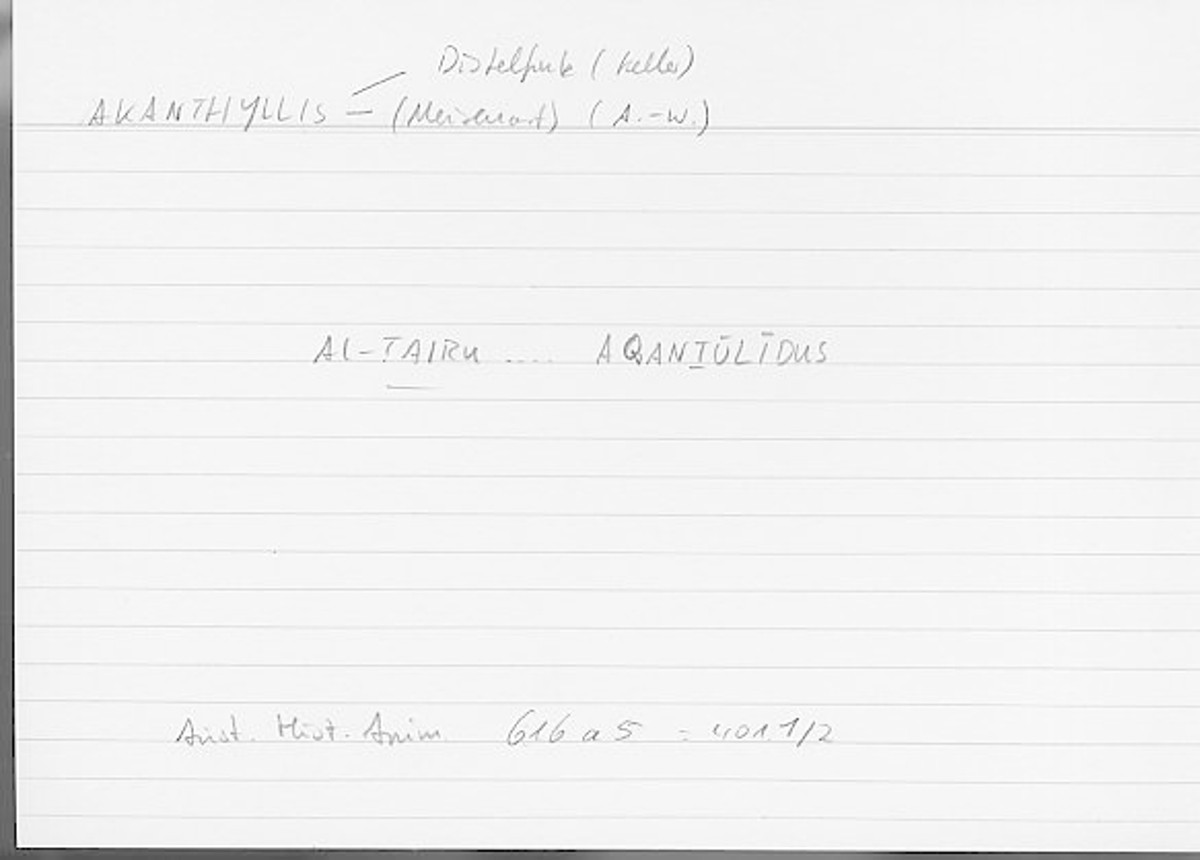 Distelfink (Keller)
AKANTHYLLIS — (Meisenart) (A.-W.)
Al-ṬAIRu .... AQANṮŪLĪDUS
Arist. Hist. Anim. 616 a 5 = 401.1/2